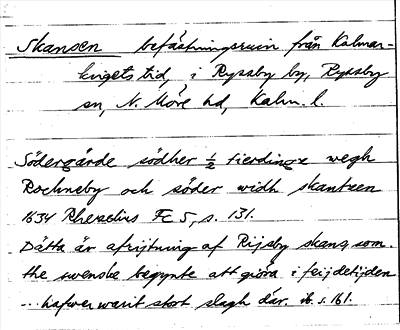 Skansen befästningsruin från Kalmar-
krigets tid, i Ryssby by, Ryssby
sn, N. Möre hd, Kalm. l.
Södergärde södher 1/2 fierdingz wegh
Rochneby och söder widh skantzen
1634 Rhezelius Fc 5, s. 131.
Dätta är afrijtning af Rijsby skans, som
the swenske begynte att giöra i feijdetijden
... hafwer warit stort slagh där. ib. s. 161.